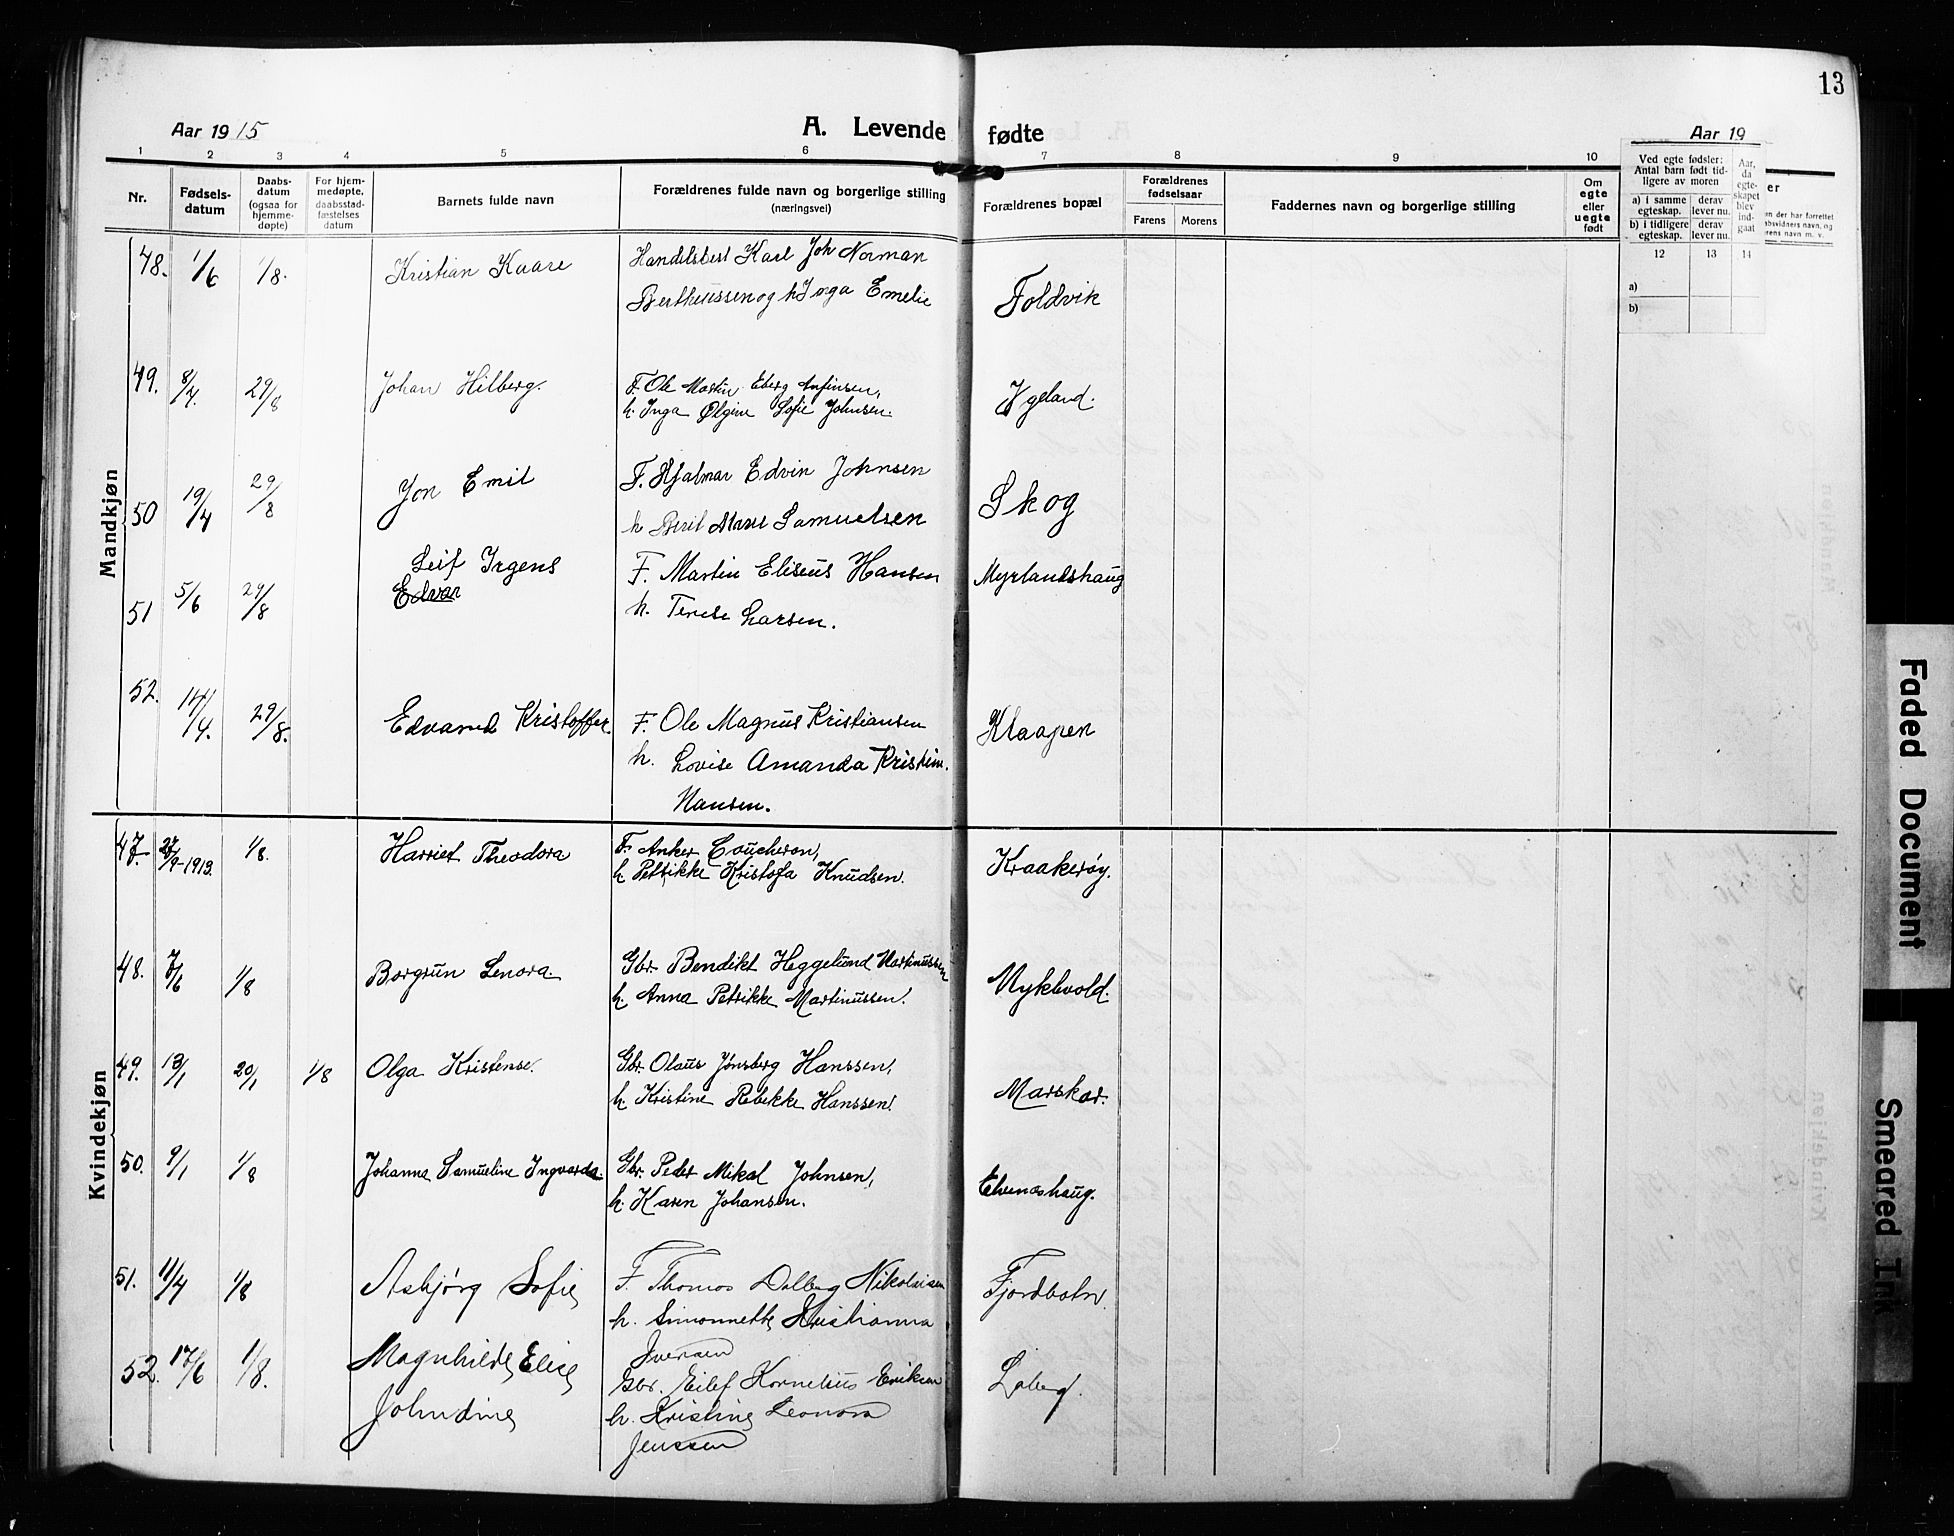 13
Aar 1915
A. Levende fødte
Aar 19
1 2 3 4 5 6 7 8 9 10 12 13 14
Nr.
Fødsels-
datum
Daabs-
datum
(ogsaa for
hjemme-
døpte)
For hjem-
medøpte,
daabsstad-
fæstelses
datum
Barnets fulde navn
Forældrenes fulde navn og borgerlige stilling
(næringsvei)
Forældrenes bopæl
Forældrenes
fødselsaar
Farens Morens
Faddernes navn og borgerlige stilling
Om
egte
eller
uegte
født
Ved egte fødsler:
Antal barn født tid-
ligere av moren
a) i samme
egteskap.
derav
lever nu.
b) i tidligere
egteskap.
derav
lever nu.
Aar,
da
egte-
skapet
blev
ind-
gaat
a)
b)
Mandkjøn
48. 1/6 1/8. Kristian Kaare Handelsbest Karl Joh Norman
Bertheussen og h Inga Emelie Foldvik
49. 8/4. 29/8 Johan Hilberg. F. Ole Martin Eberg Anfinsen,
h. Inga Olgine Sofie Johnsen. Ygeland.
50 19/4 29/8 Jon Emil F. Hjalmar Edvin Johnsen
h Berit Marie Samuelsen Skog
51 5/6 29/8 Leif Irgens
Edvar F. Martin Eliseus Hansen
h. Terese Larsen. Myrlandshaug
52. 14/4. 29/8. Edvard Kristoffer. F. Ole Magnus Kristiansen
h. Lovise Amanda Kristine.
Hansen. Klaapen
Kvindekjøn
47. 27/9-1913. 1/8. Harriet Theodora F. Anker Coucheron,
h Petrikke Kristofa Knudsen. Kraakerøy.
48. 7/6 1/8 Borgrun Lenora. Gbr. Bendikt Heggelund Martinussen
h. Anna Petrikke Martinussen. Myklevold.
49. 13/1 20/1 1/8 Olga Kristense. Gbr. Olaus Jønsberg Hanssen,
h Kristine Rebekke Hanssen. Marskar.
50. 9/1 1/8 Johanna Samueline Ingvarda. Gbr. Peder Mikal Johnsen,
h. Karen Johansen. Elvenæshaug.
51. 11/4 1/8 Asbjørg Sofie F. Thomas Dalberg Nikolaisen
h. Simonnette Kristianna
Iversen Fjordbotn.
52. 17/6 1/8. Magnhilde Elise
Johndine Gbr. Eilef Kornelius Eriksen
h. Kristine Leonora
Jenssen Løberg.
Faded Document
Smeared Ink